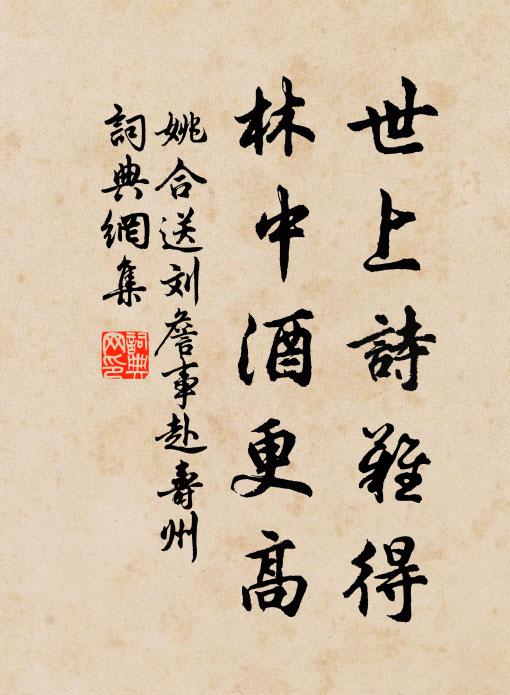 世上詩難得
林中酒更高
姚合送刘詹事赴壽州
詞典網集
詞典
网印